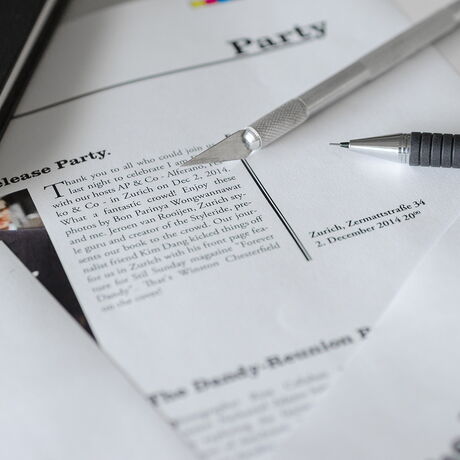 Party
elease Party.
Thank you to all who could join
last night to celebrate I am
with our hosts AP & Co - Alferano,
ko & Co - in Zurich on Dec 2, 2014.
What a fantastic crowd! Enjoy these
photos by Bon Parinya Wongwannawat
and me. Jeroen van Rooijen, Zurich sty-
le guru and creator of the Styleride, pre-
sents our book on the crowd. Our jour-
nalist friend Kim Dang kicked things off
for us in Zurich with his front page fea-
ture for Stil Sunday magazine "Forever
Dandy". That's Winston Chesterfield
on the cover!
Zurich, Zermattstraße 34
2. December 2014 20⁰⁰
The Dandy-Reunion P